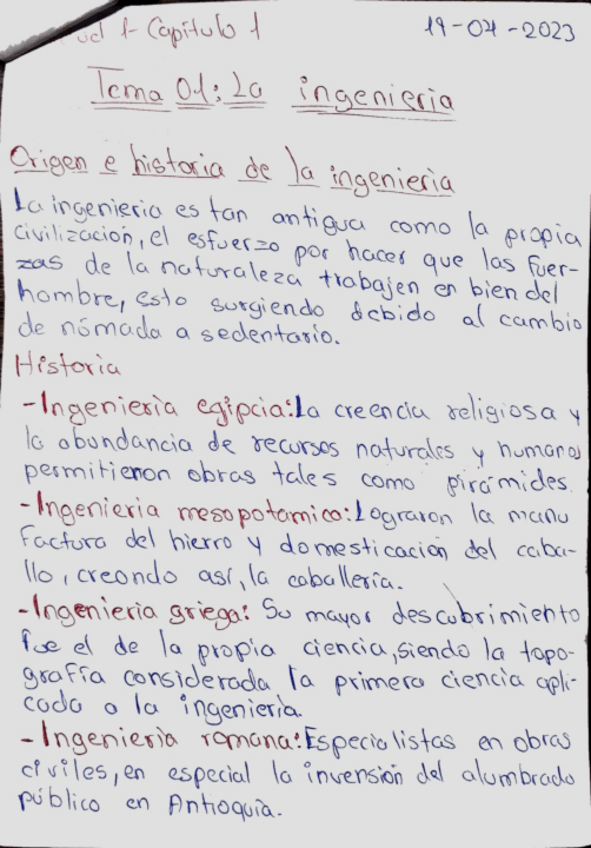 ud 1- Capítulo 1
19-04-2023
Tema 01: La ingenieria
Origen e historia de la ingenieria
La ingenieria es tan antigua como la propia
civilización, el esfuerzo por hacer que las fuer-
zas de la naturaleza trabajen en bien del
hombre, esto surgiendo debido al cambio
de nómada a sedentario.
Historia
-Ingenieria egipcia: La creencia religiosa y
la abundancia de recursos naturales y humanos
permitieron obras tales como pirámides.
-Ingenieria mesopotamica: Lograron la manu
factura del hierro y domesticación del caba-
llo, creando así, la caballería.
-Ingenieria griega: Su mayor descubrimiento
fue el de la propia ciencia, siendo la topo-
grafía considerada la primera ciencia apli-
cada a la ingeniería.
-Ingenieria romana: Especialistas en obras
civiles, en especial la invensión del alumbrado
público en Antioquía.